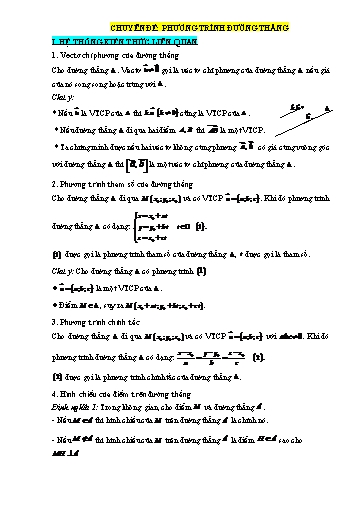 CHUYÊN ĐỀ: PHƯƠNG TRÌNH ĐƯỜNG THẲNG
I. HỆ THỐNG KIẾN THỨC LIÊN QUAN
1. Vectơ chỉ phương của đường thẳng
Cho đường thẳng Δ. Vectơ u⃗ ≠ 0⃗ gọi là vectơ chỉ phương của đường thẳng Δ nếu giá
của nó song song hoặc trùng với Δ.
Chú ý:
* Nếu u⃗ là VTCP của Δ thì k.u⃗ (k ≠ 0) cũng là VTCP của Δ.
* Nếu đường thẳng Δ đi qua hai điểm A, B thì AB⃗ là một VTCP.
* Ta chứng minh được nếu hai vectơ không cùng phương a⃗, b⃗ có giá cùng vuông góc
với đường thẳng Δ thì [a⃗, b⃗] là một vectơ chỉ phương của đường thẳng Δ.
2. Phương trình tham số của đường thẳng
Cho đường thẳng Δ đi qua M(x₀; y₀; z₀) và có VTCP u⃗ = (a; b; c). Khi đó phương trình
đường thẳng Δ có dạng: { x = x₀ + at; y = y₀ + bt; z = z₀ + ct t∈ (1).
(1) được gọi là phương trình tham số của đường thẳng Δ, t được gọi là tham số.
Chú ý: Cho đường thẳng Δ có phương trình (1)
• u⃗ = (a; b; c) là một VTCP của Δ.
• Điểm M ∈ Δ, suy ra M(x₀ + at; y₀ + bt; z₀ + ct).
3. Phương trình chính tắc
Cho đường thẳng Δ đi qua M(x₀; y₀; z₀) và có VTCP u⃗ = (a; b; c) với abc ≠ 0. Khi đó
phương trình đường thẳng Δ có dạng: (x − x₀)/a = (y − y₀)/b = (z − z₀)/c (2).
(2) được gọi là phương trình chính tắc của đường thẳng Δ.
4. Hình chiếu của điểm trên đường thẳng
Định nghĩa 1: Trong không gian, cho điểm M và đường thẳng d.
- Nếu M ∈ d thì hình chiếu của M trên đường thẳng d là chính nó.
- Nếu M ∉ d thì hình chiếu của M trên đường thẳng d là điểm H ∈ d sao cho
MH ⊥ d